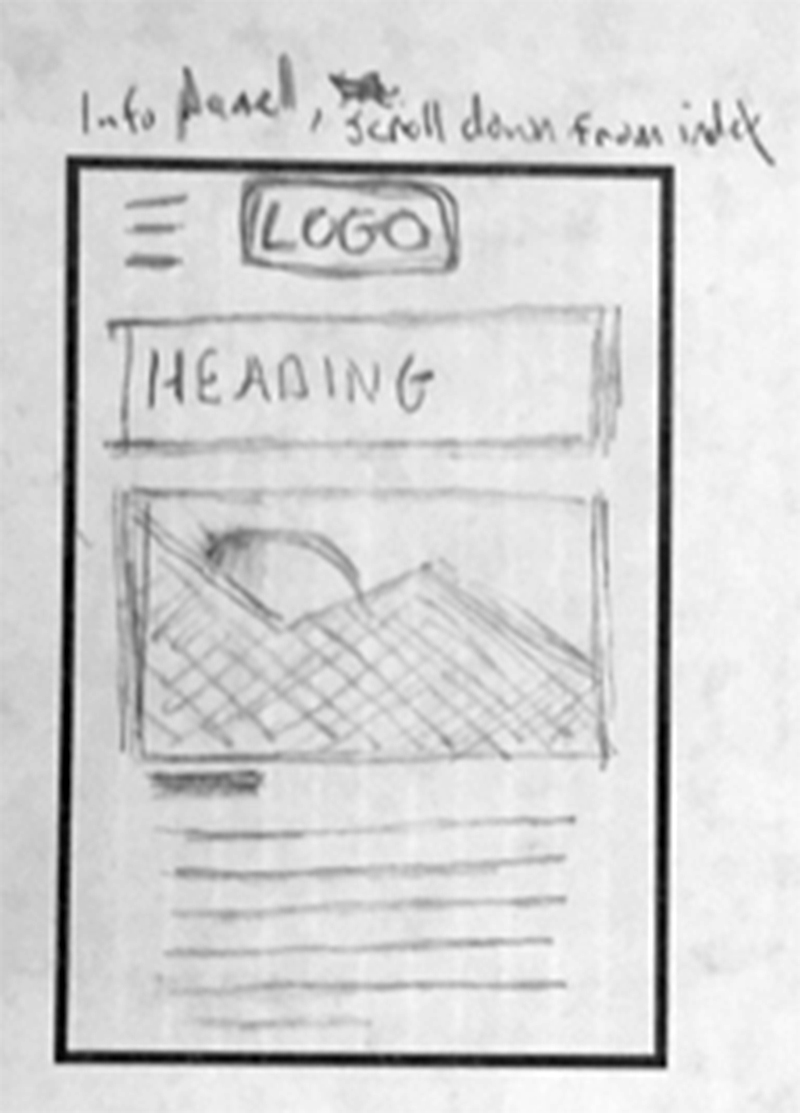 Info panel, scroll down from index
LOGO
HEADING